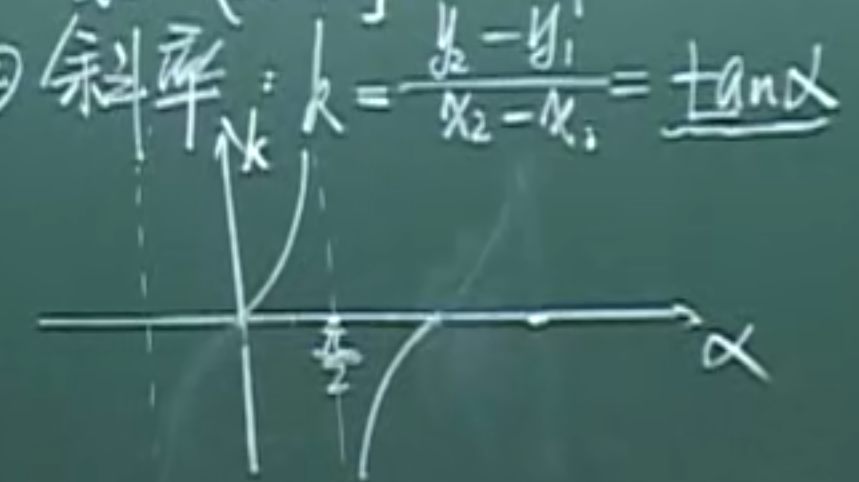 ② 斜率: k = \frac{y_2 - y_1}{x_2 - x_1} = tanα
k
\frac{π}{2}
α